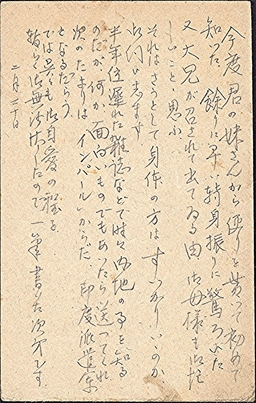 今度君の妹さんから便りを貰って初めて
知った。餘りに早い轉身振りに驚ろいた
又大兄が召されて出てゐる由 御母様も御忙
しいことと思ふ
それはさうとして身体の方はすっかりいいのか
お伺ひします
半年位遅れた雑誌などで時々内地の事を知る
のだが何か面白いものでもあったら送ってくれ
次のたよりは インパールからだ 印度派遣軍
となるだらう
では呉々も御自愛の程を
暫らく御無沙汰したので一筆書いた次第です
二月二十日